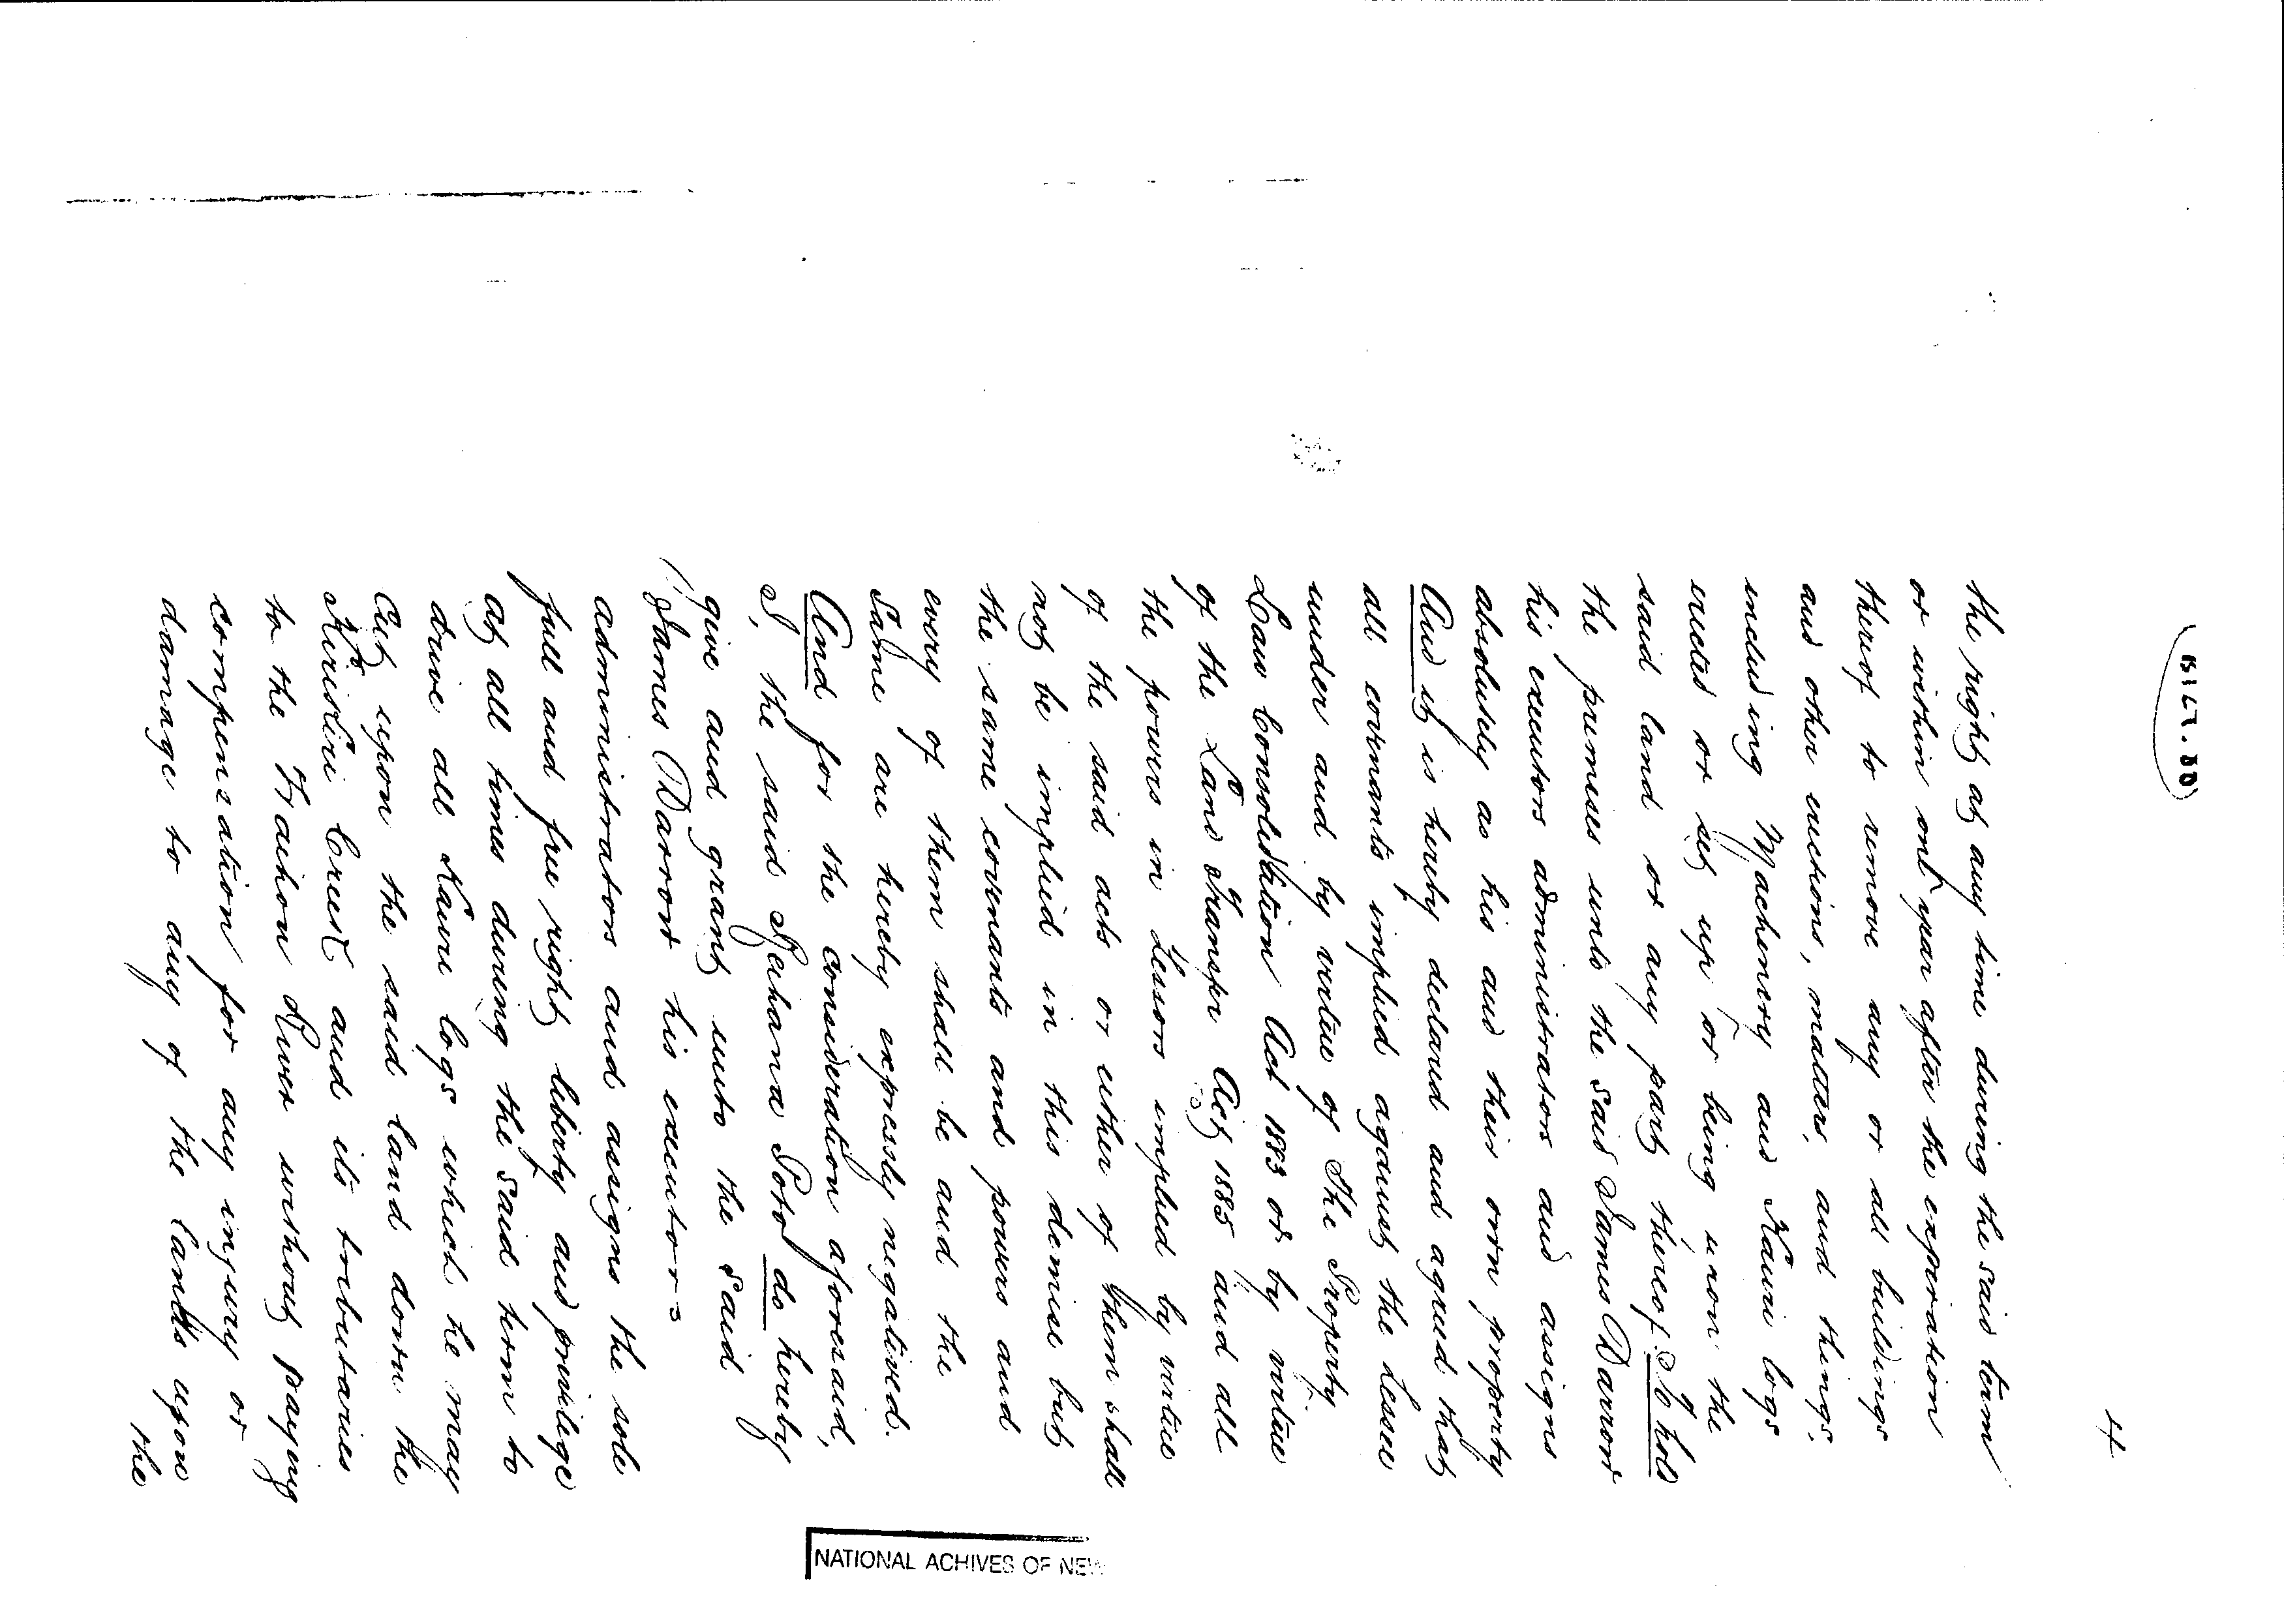 4
the right at any time during the said term
or within one year after the expiration
thereof to remove any or all buildings
and other erections, matters, and things,
including Machinery and Kauri logs
erected or set up or being upon the
said land or any part thereof. To hold
the premises unto the said James Darrow
his executors administrators and assigns
absolutely as his and their own property
And it is hereby declared and agreed that
all covenants implied against the Lessee
under and by virtue of The Property
Law Consolidation Act 1883 or by virtue
of the Land Transfer Act 1885 and all
the powers in Lessors implied by virtue
of the said acts or either of them shall
not be implied in this demise but
the same covenants and powers and
every of them shall be and the
same are hereby expressly negatived.
And for the consideration aforesaid,
I, the said Poto do hereby
give and grant unto the said
James Darrow his executors
administrators and assigns the sole
full and free right liberty and privilege
at all times during the said term to
drive all Kauri logs which he may
cut upon the said land down the
Creek and its tributaries
to the River without paying
compensation for any injury or
damage to any of the lands upon
the
NATIONAL ACHIVES OF NEW